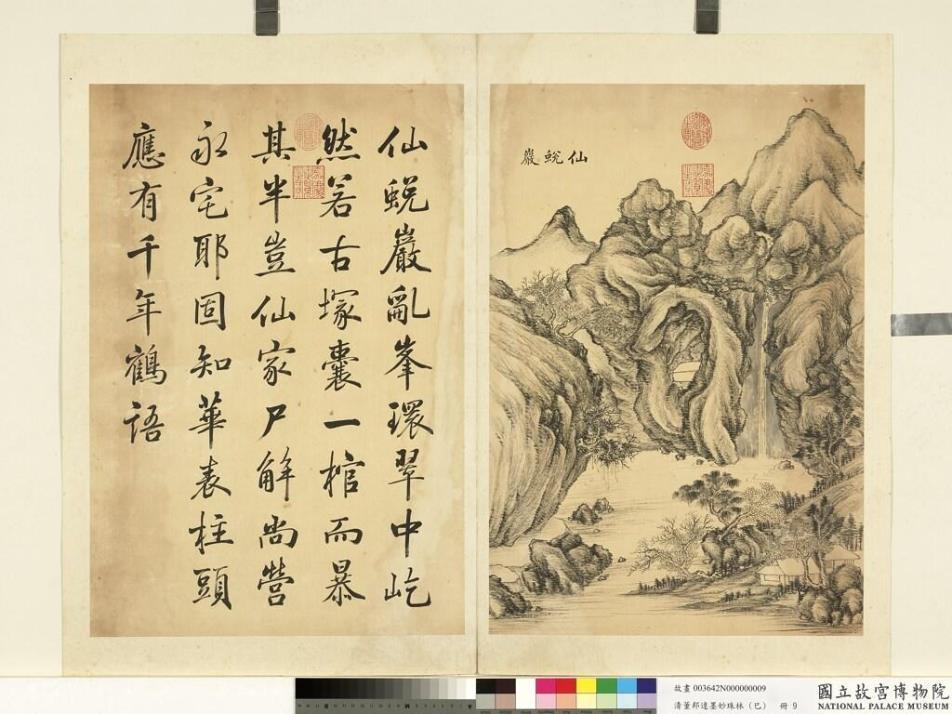 仙蛻巖亂峯環翠中屹
然若古塚囊一棺而暴
其半豈仙家尸解尚營
永宅耶固知華表柱頭
應有千年鶴語
仙蛻巖
故畫 003642N000000009
清董邦達墨妙珠林（巳） 冊 9
國立故宮博物院
NATIONAL PALACE MUSEUM